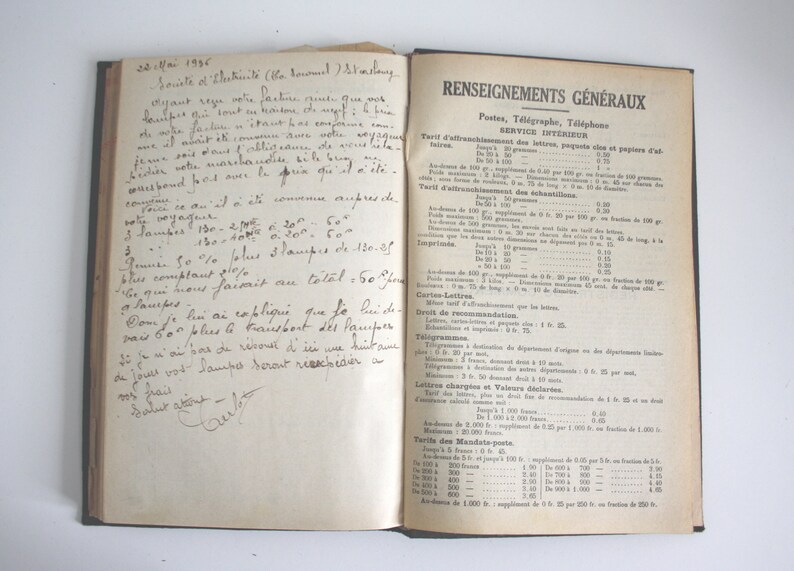 22 Mai 1936
Société d'Electricité Strasbourg
Ayant reçu votre facture ainsi que vos
lampes qui sont en
de votre facture n'étant pas conforme com-
me il avait été convenu avec votre voyageur
je me vois dans l'obligeance de vous réex-
pédier votre marchandise si le prix ne
correspond pas avec le prix qu'il a été
convenu.
Voici ce qu'il a été convenu auprès de
votre voyageur.
3 lampes 130-25 à 20f = 60f
3 130-40 à 20f = 60f
Remise 50 % plus 3 lampes de 130-25
plus comptant 2 %
Ce qui nous faisait au total = 60f pour
9 lampes.
Donc je lui ai expliqué que je lui de-
vais 60f plus le transport des lampes
Si je n'ai pas de réponse d'ici une huitaine
de jours vos lampes seront réexpédiées à
vos frais.
Salut
RENSEIGNEMENTS GÉNÉRAUX
Postes, Télégraphe, Téléphone
SERVICE INTÉRIEUR
Tarif d'affranchissement des lettres, paquets clos et papiers d'af-
faires. Jusqu'à 20 grammes 0,50
De 20 à 50 — 0,75
De 50 à 100 — 1 »
Au-dessus de 100 gr., supplément de 0.40 par 100 gr. ou fraction de 100 grammes.
Poids maximum : 2 kilogs. — Dimensions maxima : 0 m. 45 sur chacun des
côtés ; sous forme de rouleaux, 0 m. 75 de long × 0 m. 10 de diamètre.
Tarif d'affranchissement des échantillons.
Jusqu'à 50 grammes 0,20
De 50 à 100 — 0,30
Au-dessus de 100 gr., supplément de 0 fr. 20 par 100 gr. ou fraction de 100 gr.
Poids maximum : 500 grammes.
Au-dessus de 500 grammes, les envois sont faits au tarif des lettres.
Dimensions maximum : 0 m. 30 sur chacun des côtés ou 0 m. 45 de long, à la
condition que les deux autres dimensions ne dépassent pas 0 m. 15.
Imprimés. Jusqu'à 10 grammes 0,10
De 10 à 20 — 0,15
De 20 à 50 — 0,20
» 50 à 100 — 0,25
Au-dessus de 100 gr., supplément de 0 fr. 20 par 100 gr. ou fraction de 100 gr.
Poids maximum : 3 kilos. — Dimensions maximum 45 cent. de chaque côté. —
Rouleaux : 0 m. 75 de long × 0 m. 10 de diamètre.
Cartes-Lettres.
Même tarif d'affranchissement que les lettres.
Droit de recommandation.
Lettres, cartes-lettres et paquets clos : 1 fr. 25.
Echantillons et imprimés : 0 fr. 75.
Télégrammes.
Télégrammes à destination du département d'origine ou des départements limitro-
phes : 0 fr. 20 par mot,
Minimum : 3 francs, donnant droit à 10 mots.
Télégrammes à destination des autres départements : 0 fr. 25 par mot,
Minimum : 3 fr. 50 donnant droit à 10 mots.
Lettres chargées et Valeurs déclarées.
Tarif des lettres, plus un droit fixe de recommandation de 1 fr. 25 et un droit
d'assurance calculé comme suit :
Jusqu'à 1.000 francs 0,40
De 1.000 à 2.000 francs 0.65
Au-dessus de 2.000 fr. : supplément de 0.25 par 1.000 fr. ou fraction de 1.000 fr.
Maximum : 20.000 francs.
Tarifs des Mandats-poste.
Jusqu'à 5 francs : 0 fr. 45.
Au-dessus de 5 fr. et jusqu'à 100 fr. : supplément de 0.05 par 5 fr. ou fraction de 5 fr.
De 100 à 200 francs 1.90 De 600 à 700 — 3.90
De 200 à 300 — 2.40 De 700 à 800 — 4.15
De 300 à 400 — 2.90 De 800 à 900 — 4.40
De 400 à 500 — 3.40 De 900 à 1.000 — 4.65
De 500 à 600 — 3.65
Au-dessus de 1.000 fr. : supplément de 0 fr. 25 par 250 fr. ou fraction de 250 fr.